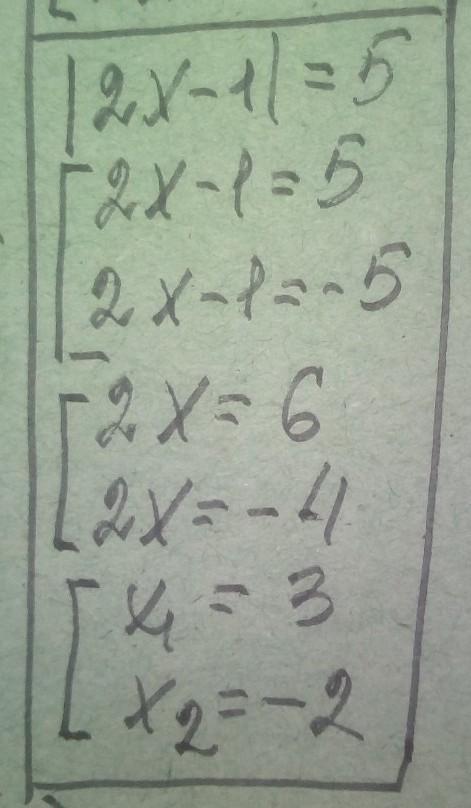 |2x-1|=5
[2x-1=5
2x-1=-5
[2x=6
2x=-4
[x₁=3
x₂=-2